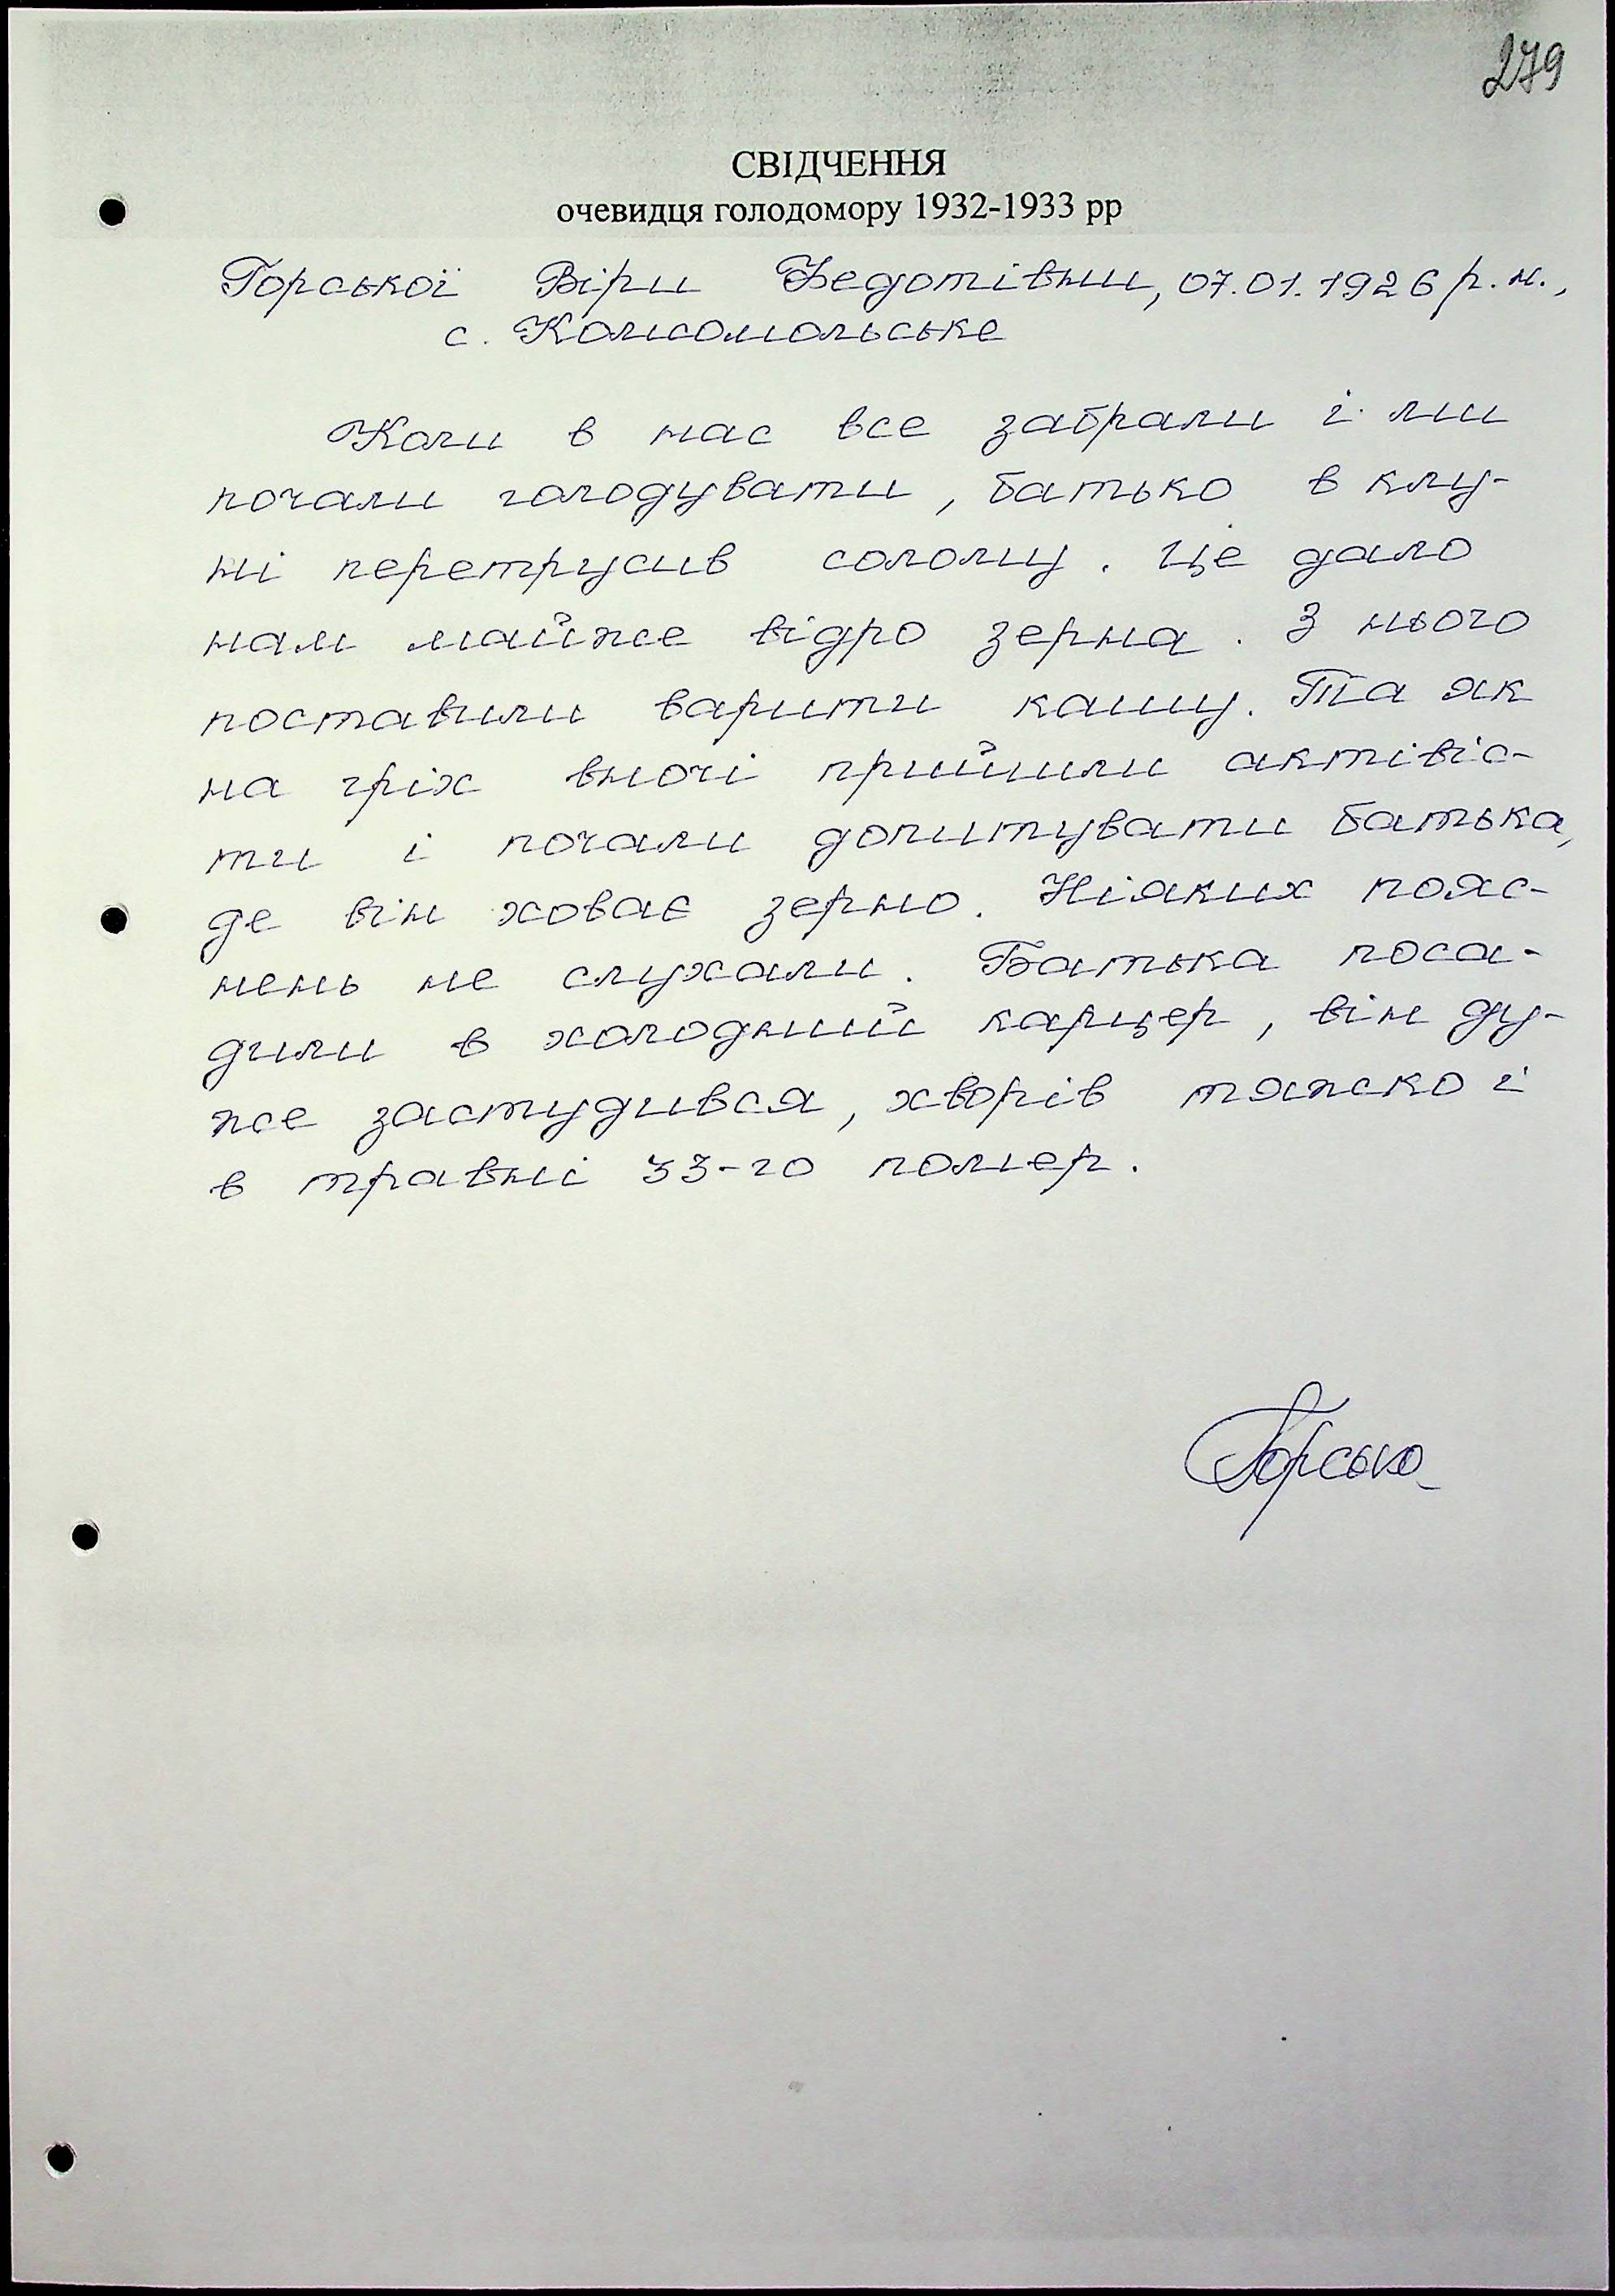 279
СВІДЧЕННЯ
очевидця голодомору 1932-1933 рр
Горської Віри Федотівни, 07.01.1926 р.н.,
с. Комсомольське
Коли в нас все забрали і ми
почали голодувати, батько в клу-
ні перетрусив солому. Це дало
нам майже відро зерна. З нього
поставили варити кашу. Та як
на гріх вночі прийшли активіс-
ти і почали допитувати батька,
де він ховає зерно. Ніяких пояс-
нень не слухали. Батька поса-
дили в холодний карцер, він ду-
же застудився, хворів тяжко і
в травні 33-го помер.
Горська